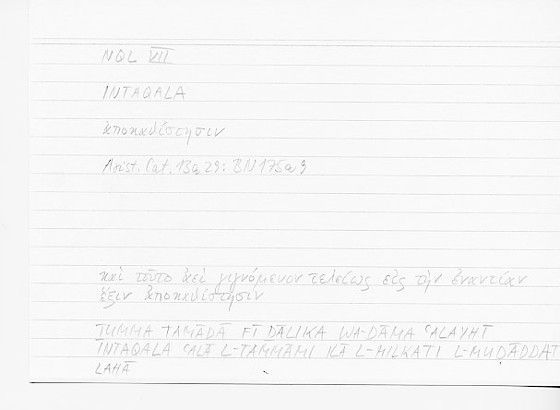 NQL VII
INTAQALA
ἀποκαθίστησιν
Arist. Cat. 13a 29: BN 175a 9
καὶ τοῦτο ἀεὶ γιγνόμενον τελείως εἰς τὴν ἐναντίαν
ἕξιν ἀποκαθίστησιν
ṮUMMA TAMĀDĀ FĪ ḎĀLIKA WA-DĀMA ʿALAYHI
INTAQALA ʿALĀ L-TAMMĀMI ILĀ L-MILKATI L-MUḌĀDDATI
LAHĀ